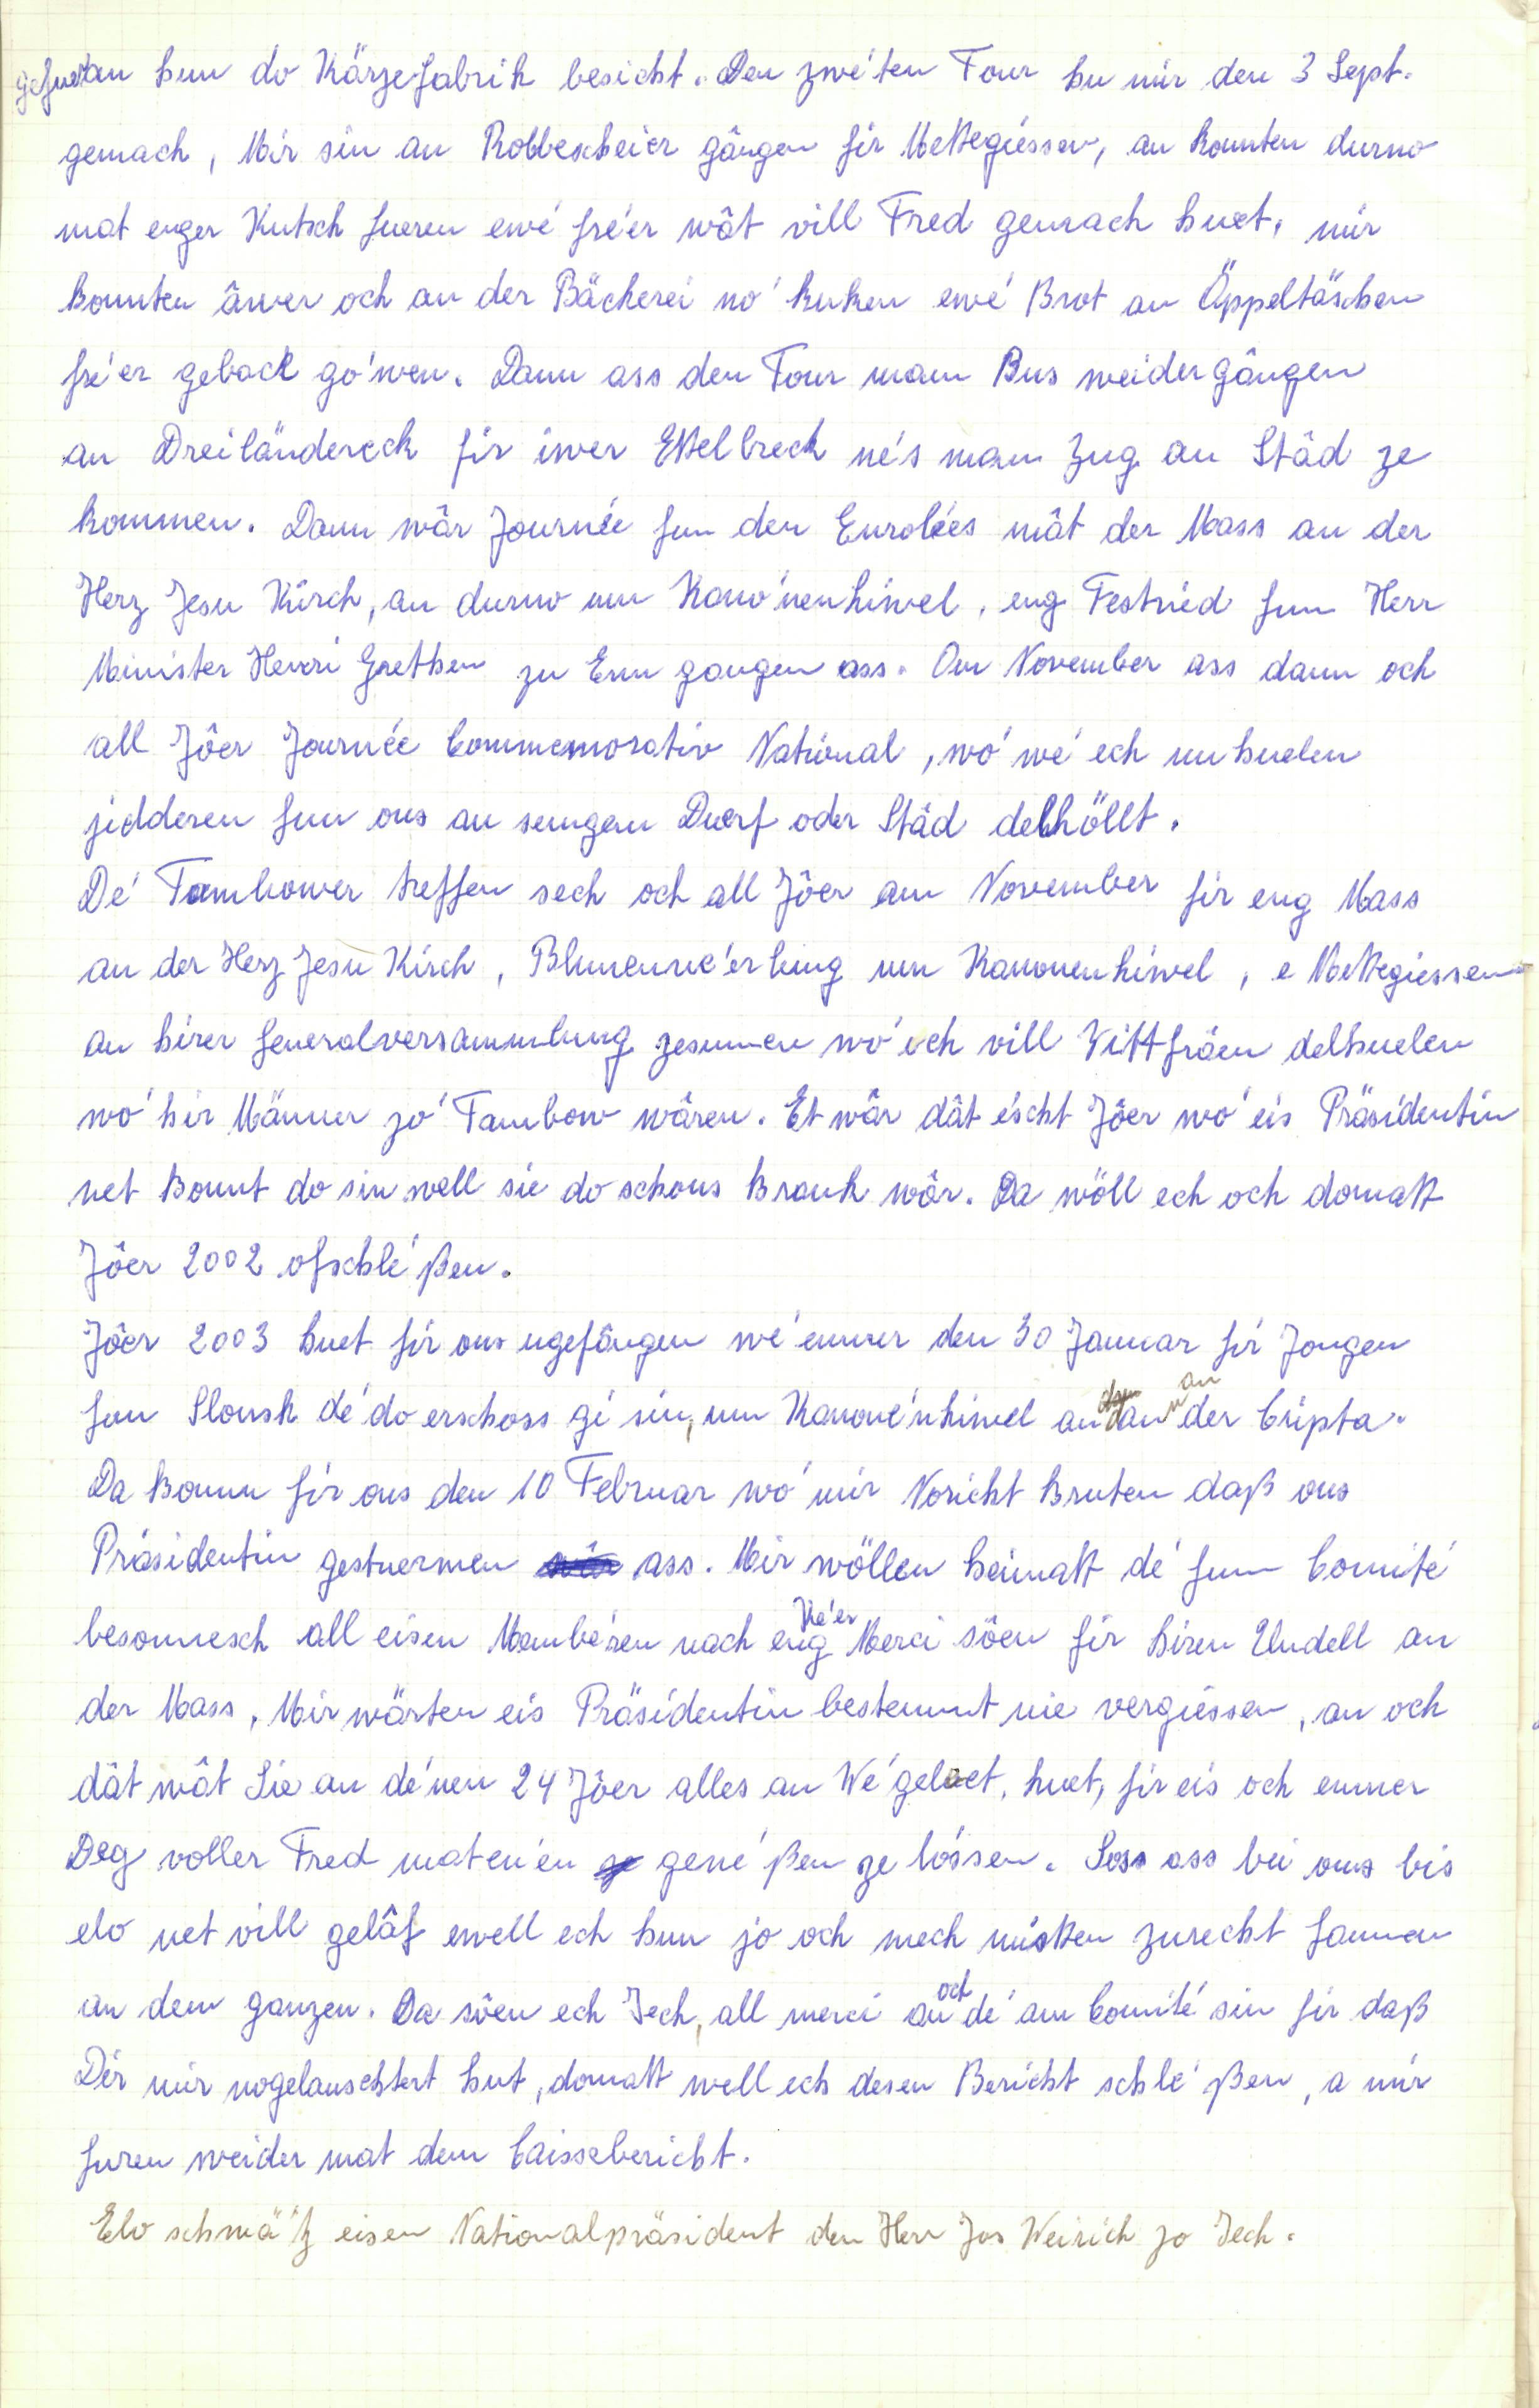 gefuer an hun do Kärzefabrik besicht. Den zwéten Tour hu mir den 3 Sept.
gemach, Mir sin an Robbescheier gângen fir Mëttegiessen, an konnten durno
mat enger Kutsch fueren ewé fréer wât vill Fred gemach huet, mir
konnten âwer och an der Bäckerei no' kuken ewé Brot an Äppeltäschen
fréer geback go'wen. Dann ass den Tour mam Bus weider gângen
an Dreiländereck fir iwer Ettelbreck nés mam Zug an Stâd ze
kommen. Dann wâr Journée fun den Enrolées mât der Mass an der
Herz Jesu Kirch, an durno um Kano'nenhiwel, eng Festried fum Herr
Minister Henri Grethen zu Enn gangen ass. Om November ass dann och
all Jôer Journée Commemorativ National, wo' wé ech unhuelen
jidderen fun ons an sengem Duerf oder Stâd delhöllt.
Dé Tambower treffen sech och all Jôer am November fir eng Mass
an der Herz Jesu Kirch, Blumenné'erlung um Kanonenhiwel, e Mëttegiessen
an hirer Generalversammlung zesummen wo' och vill Wittfräen delhuelen
wo' hir Männer zo' Tambow wâren. Et wâr dât éischt Jôer wo' eis Präsidentin
net konnt do sin well sie do schons krank wôr. Da wöll ech och domatt
Jôer 2002 ofschlé ßen.
Jôer 2003 huet fir ons ugefângen wé emmer den 30 Januar fir Jongen
fun Slonsk dé do erschoss gi sin, um Kanoné'nhiwel an dann an der Cripta.
Da komm fir ons den 10 Februar wo' mir Noricht kruten daß ons
Präsidentin gestuermen ass. Mir wöllen heimatt dé fum Comité
besonnesch all eisen Membéren nach eng Ké'er Merci sôen fir hiren Undell an
der Mass, Mir wärten eis Präsidentin bestemmt nie vergiessen, an och
dât wât Sie an dé'nen 24 Jôer alles an Wé geleet, huet, fir eis och emmer
Deg voller Fred maten'en gené ßen ze lóssen. Soss ass bei ons bis
elo net vill gelâf ewell ech hun jo och mech mússen zurecht fannen
an dem ganzen. Da sôen ech Iech, all merci an och dé am Comité sin fir daß
Dir mir nogelauschtert hut, domatt well ech desen Bericht schlé ßen, a mir
furen weider mat dem Caissebericht.
Elo schwä'tz eisen Nationalpräsident den Herr Jos Weirich zo Iech.